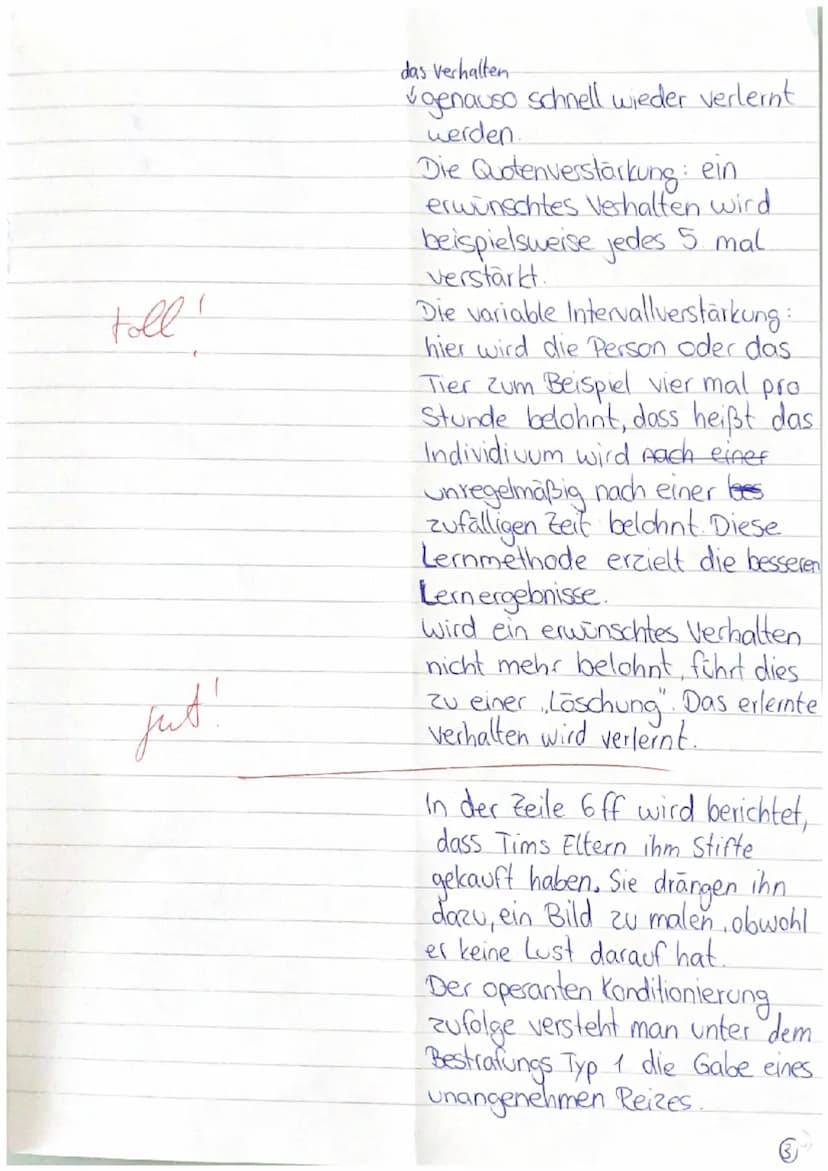 das Verhalten
↓genauso schnell wieder verlernt
werden.
Die Quotenverstärkung: ein
erwünschtes Verhalten wird
beispielsweise jedes 5. mal
verstärkt.
toll!
Die variable Intervallverstärkung:
hier wird die Person oder das
Tier zum Beispiel vier mal pro
Stunde belohnt, dass heißt das
Individiuum wird nach einer
unregelmäßig nach einer bes
zufälligen Zeit belohnt. Diese
Lernmethode erzielt die besseren
Lernergebnisse.
Wird ein erwünschtes Verhalten
nicht mehr belohnt, führt dies
zu einer „Löschung". Das erlernte
gut!
Verhalten wird verlernt.
In der Zeile 6 ff wird berichtet,
dass Tims Eltern ihm Stifte
gekauft haben. Sie drängen ihn
dazu, ein Bild zu malen, obwohl
er keine Lust darauf hat.
Der operanten Konditionierung
zufolge versteht man unter dem
Bestrafungs Typ 1 die Gabe eines
unangenehmen Reizes.
3